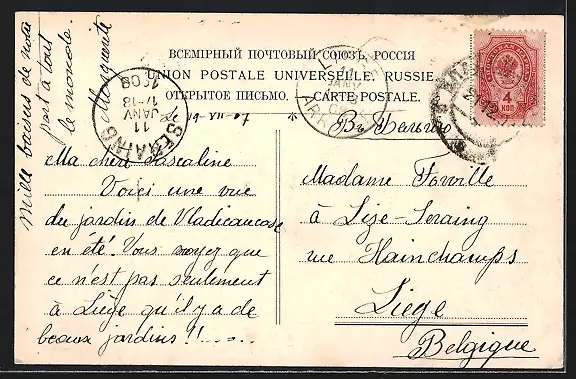 ВСЕМІРНЫЙ ПОЧТОВЫЙ СОЮЗЪ, РОССІЯ
UNION POSTALE UNIVERSELLE, RUSSIE
ОТКРЫТОЕ ПИСЬМО. — CARTE POSTALE.
Mille baisers de nous
part à tout
le monde.
Marguerite
SERAING
11
JANV
17-18
1908
4
КОП
le 19-VII-07
Въ Бельгію
Ma chère Pascaline
Voici une vue
du jardin de Vladicaucase
en été. Vous voyez que
ce n'est pas seulement
à Liège qu'il y a de
beaux jardins!!
Madame Forville
à Lize-Seraing
rue Hainchamps
Liège
Belgique